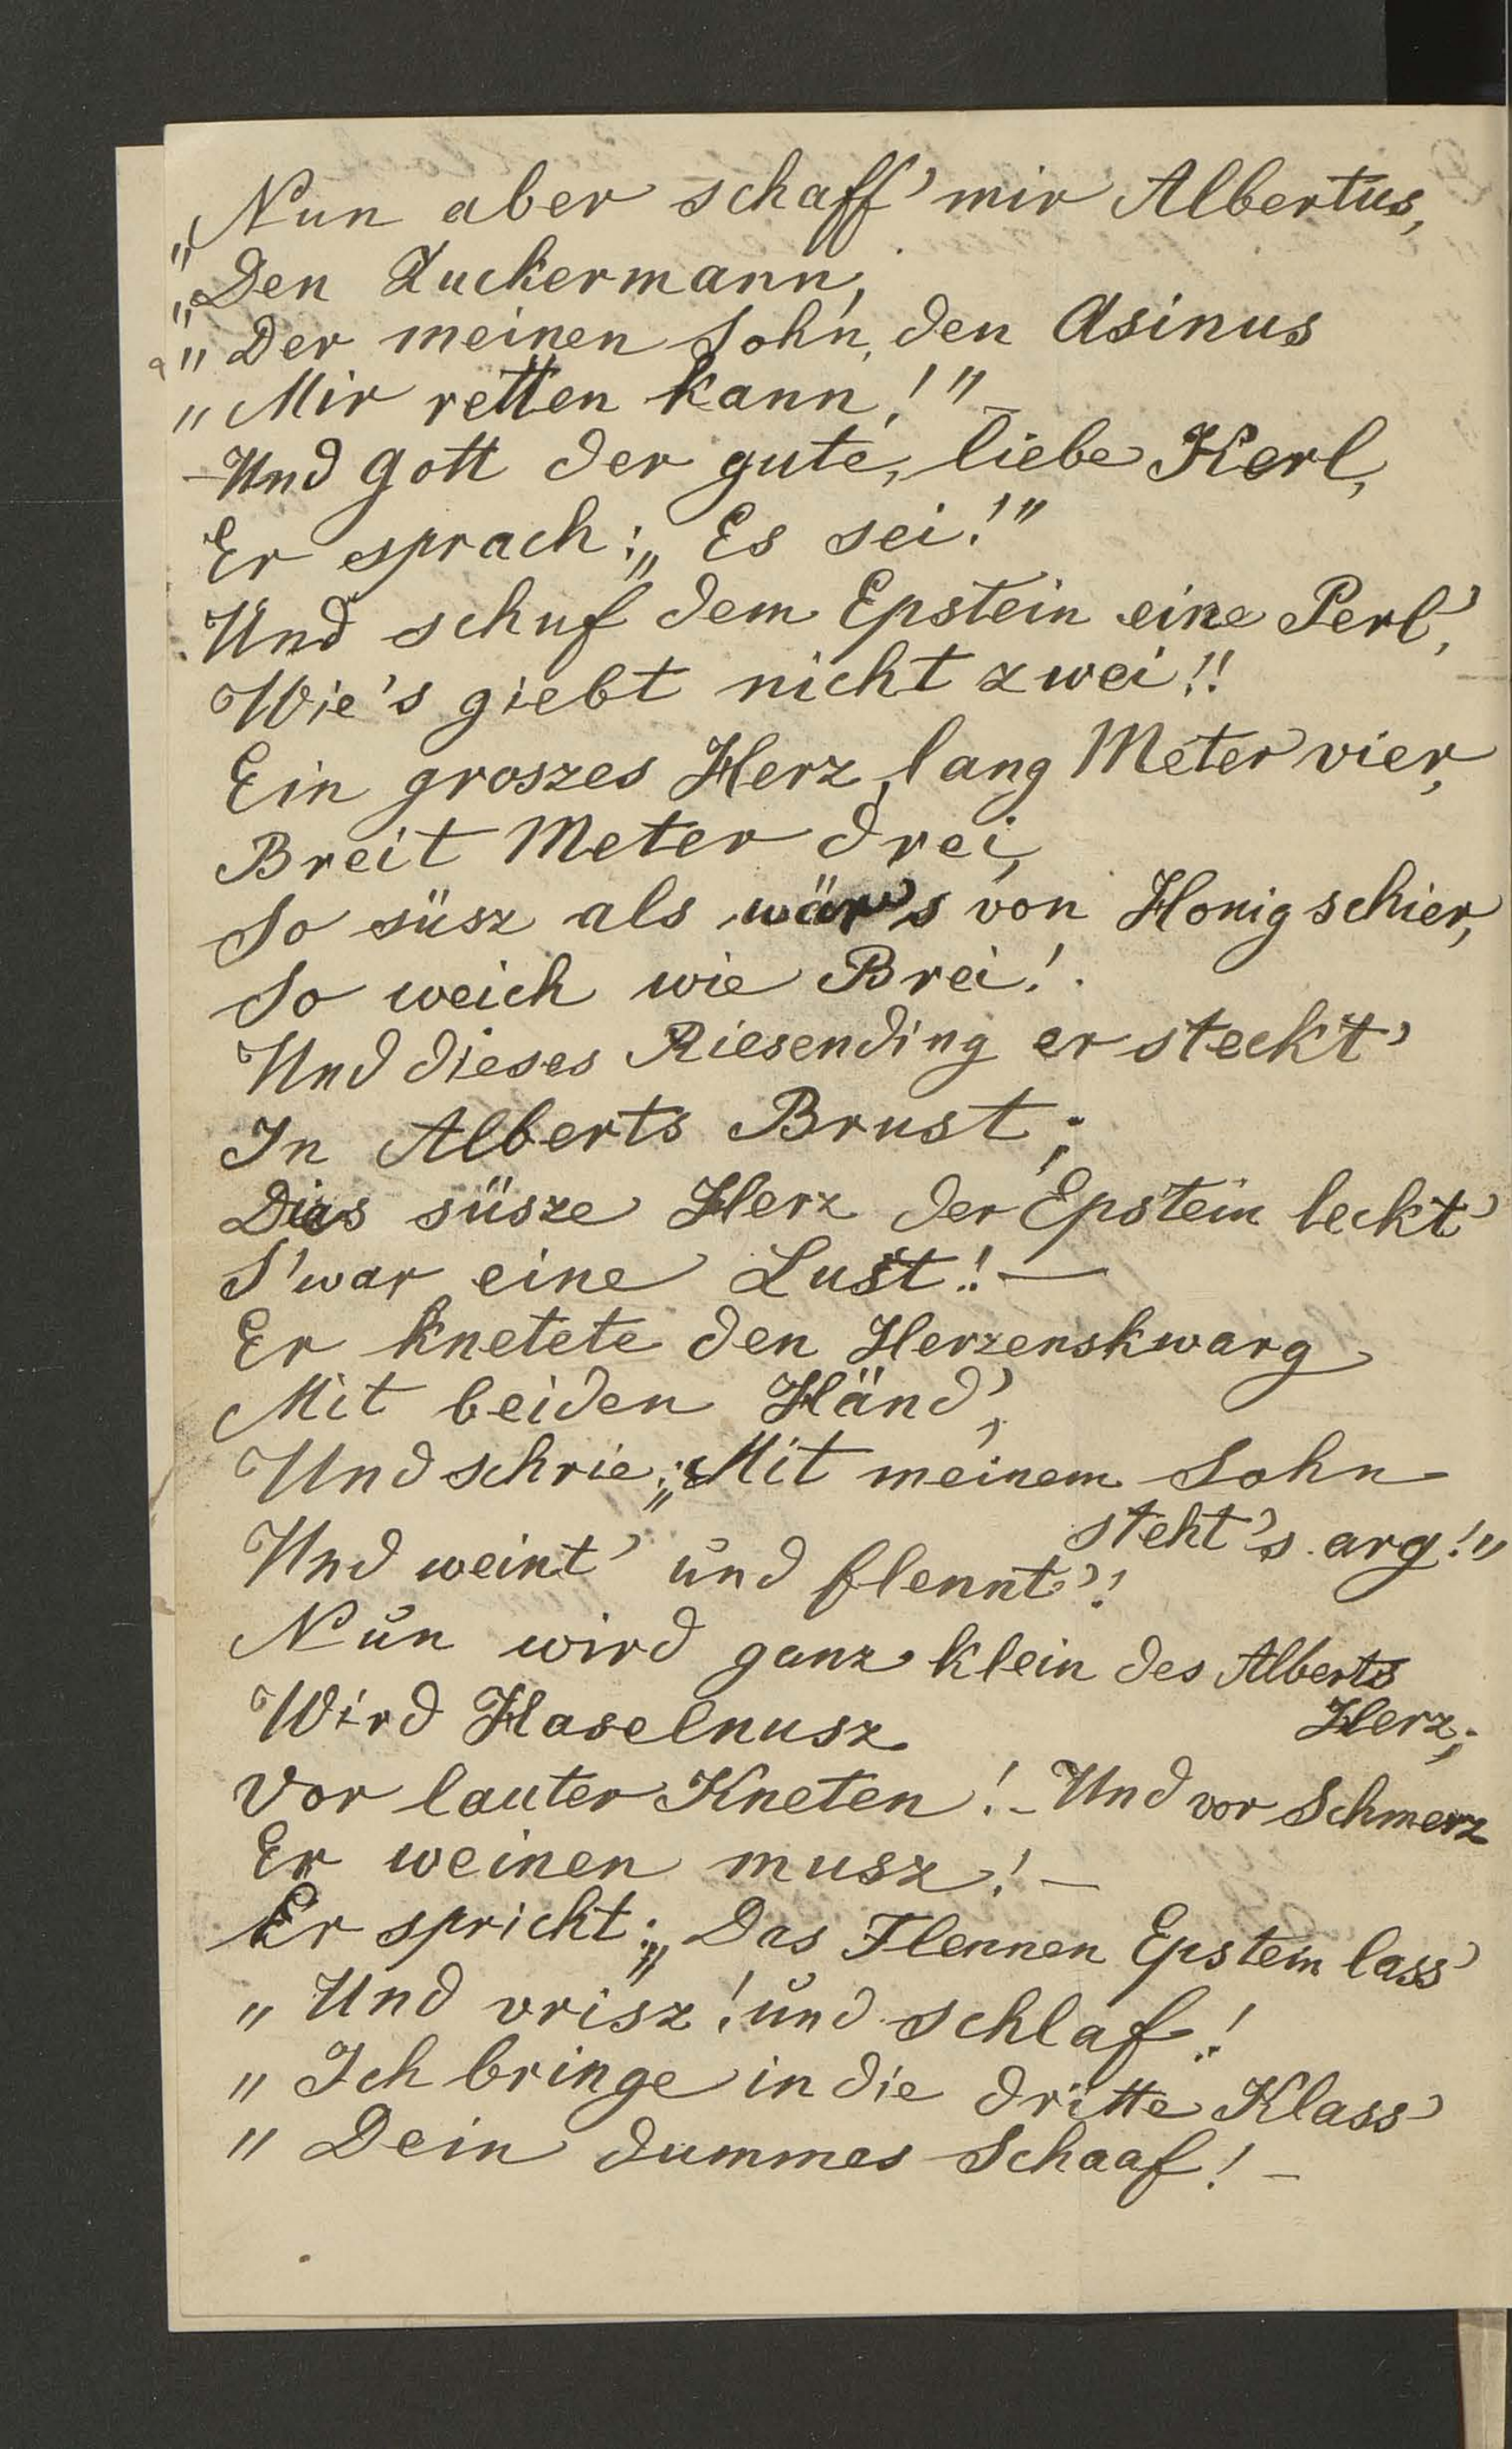 „Nun aber schaff' mir Albertus,
„Den Zuckermann,
„Der meinen Sohn, den Asinus
„Mir retten kann!" –
– Und Gott der gute, liebe Kerl,
Er sprach: „Es sei!"
Und schuf dem Epstein eine Perl',
Wie's giebt nicht zwei!!
Ein groszes Herz, lang Meter vier,
Breit Meter drei,
So süsz als wär's von Honig schier,
So weich wie Brei!
Und dieses Riesending er steckt'
In Alberts Brust;
Dies süsze Herz der Epstein leckt'
S'war eine Lust! —
Er knetete den Herzenskwarg
Mit beiden Händ',
Und schrie: „Mit meinem Sohn
steht's arg!"
Und weint' und flennt'!
Nun wird ganz klein des Alberts
Herz;
Wird Haselnusz
Vor lauter Kneten! – Und vor Schmerz
Er weinen musz! –
Er spricht: „Das Flennen Epstein lass'
„Und vrisz! und schlaf!
„Ich bringe in die dritte Klass'
„Dein dummes Schaaf! –